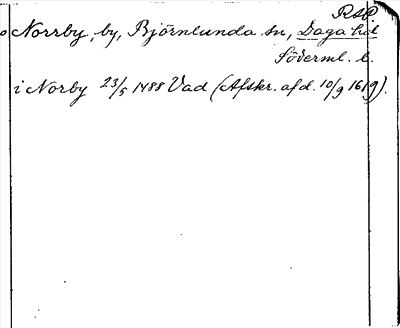 RAP.
Norrby, by, Björnlunda sn, Daga hd
Söderml. l.
i Norby 23/5 1488 Vad (Afskr. af d. 10/9 1619).